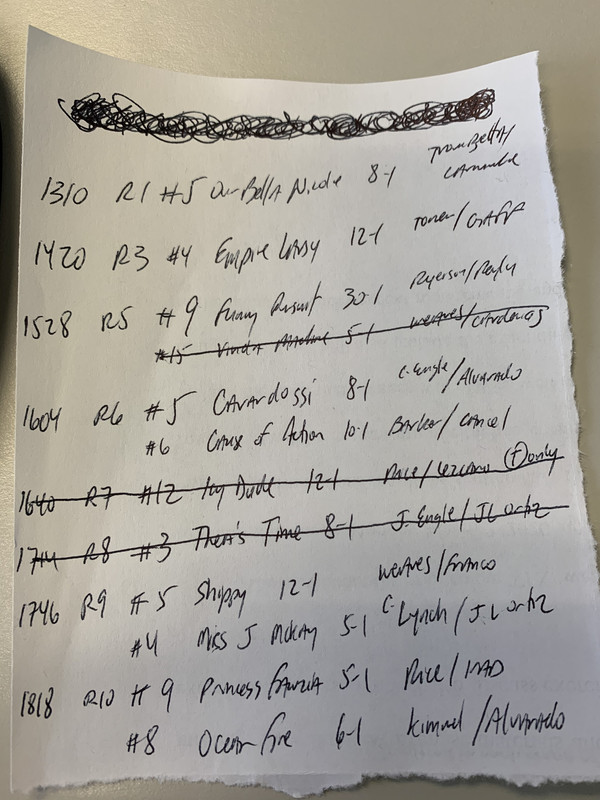 1310 R1 #5 Our Bella Nicole 8-1 TromBettA/
CAnnuli
1420 R3 #4 Empire LASSy 12-1 Toner/GAFF
1528 R5 #9 Funny Pursuit 30-1 Ryerson/
#15 5-1 weaver/CArdenas
1604 R6 #5 CAvArdossi 8-1 C. Engle/Alvarado
#6 Cause of Action 10-1 Barker/CAncel
1640 R7 #12 Icy Dude 12-1 Rice/Lezcano (T) only
1714 R8 #3 There's Time 8-1 J. Engle/JL ortiz
1746 R9 #5 Shippy 12-1 weaver/FrAnco
#4 Miss J McKay 5-1 C. Lynch/J.L ortiz
1818 R10 #9 Princess FAwziA 5-1 Rice/IRAD
#8 Ocean fire 6-1 Kimmel/AlvarAdo